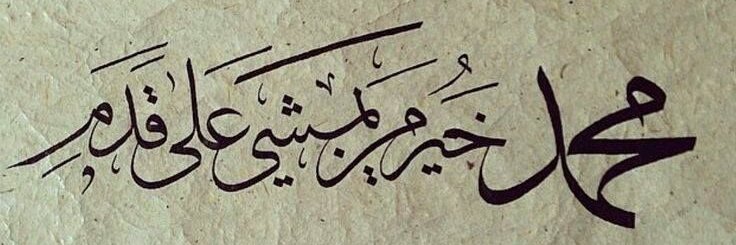 محمد خير من يمشي على قدم